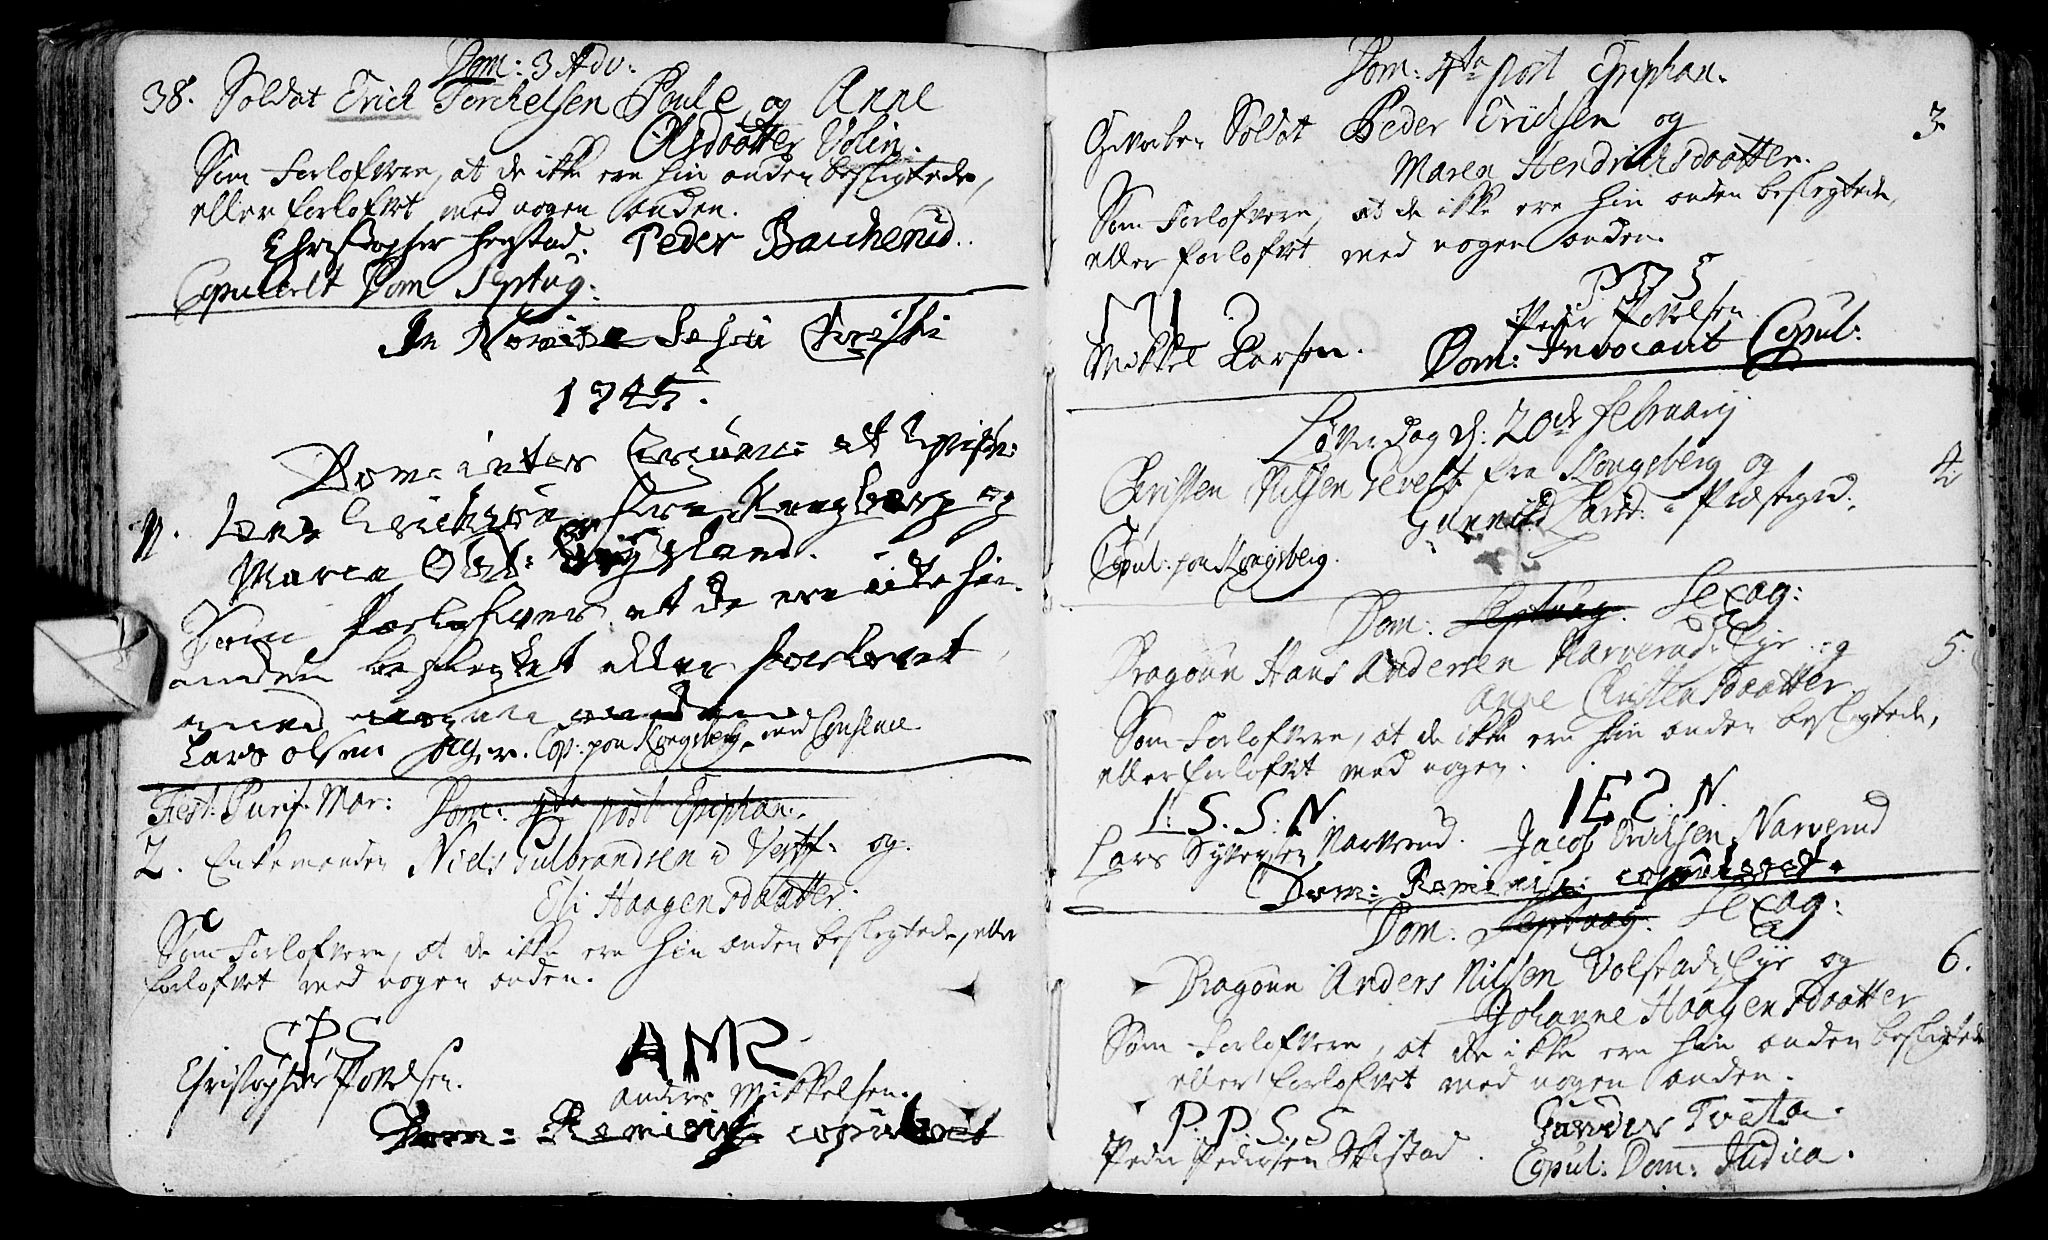 Dom: 3 Adv:
38. Soldat Erich Torchelsen Poule og Anne
Olsdaatter Volin.
Som Forlofvere, at de ikke ere hin anden beslegtede,
eller forlofvet med nogen anden.
Christopher Peder Baccherud.
Copuleret Dom Septuag:
In Nomine Jesu Christi
1745.
Dom: inter et Epiph:
1. fra Kongsberg og
Maren
Som Forlofver at de ere icke hin
anden beslegtet eller forlovet
med nogen anden
Lars Olsen Cop: paa Kongsberg med Consence
Fest: Purif: Mar: Dom: 4ta post Epiphan.
2. Enkemanden Niels Gulbrandsen og
Eli Haagensdaatter.
Som Forlofvere, at de ikke ere hin anden beslegtede, eller
forlofvet med nogen anden.
CPS AMS
Christopher Povelsen.
Anders Mikkelsen.
Dom: Reminisc: copuleret
Dom: 4ta post Epiphan.
Soldat Peder Erichsen og 3
Maren Hendrichsdaatter.
Som Forlofvere, at de ikke ere hin anden beslegtede,
eller forlofvet med nogen anden.
PPS
Peder Povelsen
Mikkel Larsen. Dom: Invocavit Copul:
Løverdag d: 20de February
Christen Nilsen Tevelt fra Kongsberg og 4
Gunnild
Copul: paa Kongsberg.
Dom: Septuag. Sexag:
Dragoun Hans Andersen Narverud Eje og 5.
Anne Christensdaatter
Som Forlofvere, at de ikke ere hin anden beslegtede,
eller forlofvet med nogen.
L: S. S: N. I E S. N.
Lars Syversen Narverud. Jacob Narverud
Dom: Reminisc: copuleret.
Dom. Septuag. Sexag:
Dragoun Anders Nilsen Volstad Eje og 6.
Johanne Haagensdaatter
Som Forlofvere, at de ikke ere hin anden beslegtede
eller forlofvet med nogen anden.
P. P. S. S Tveta.
Peder Pedersen Skistad. Copul: Dom: Judica.